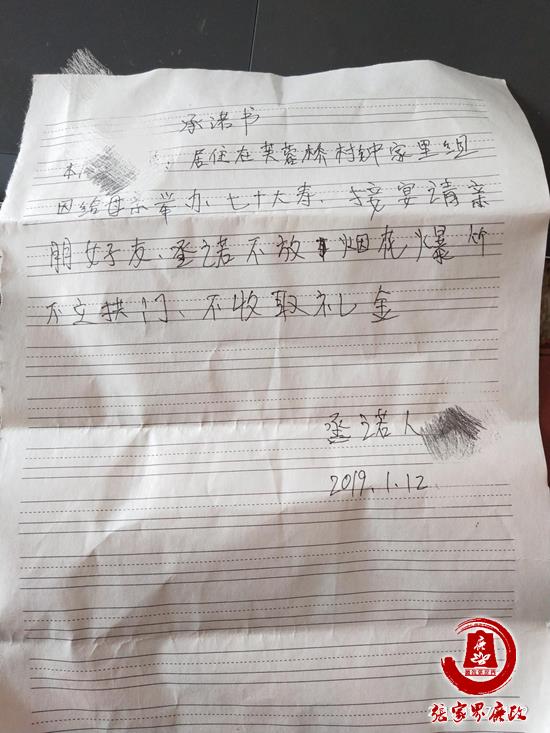 承诺书
本 、居住在芙蓉桥村钟家里组
因给母亲举办七十大寿、接宴请亲
朋好友、承诺不放烟花爆竹
不立拱门、不收取礼金
承诺人
2019.1.12
张家界廉政